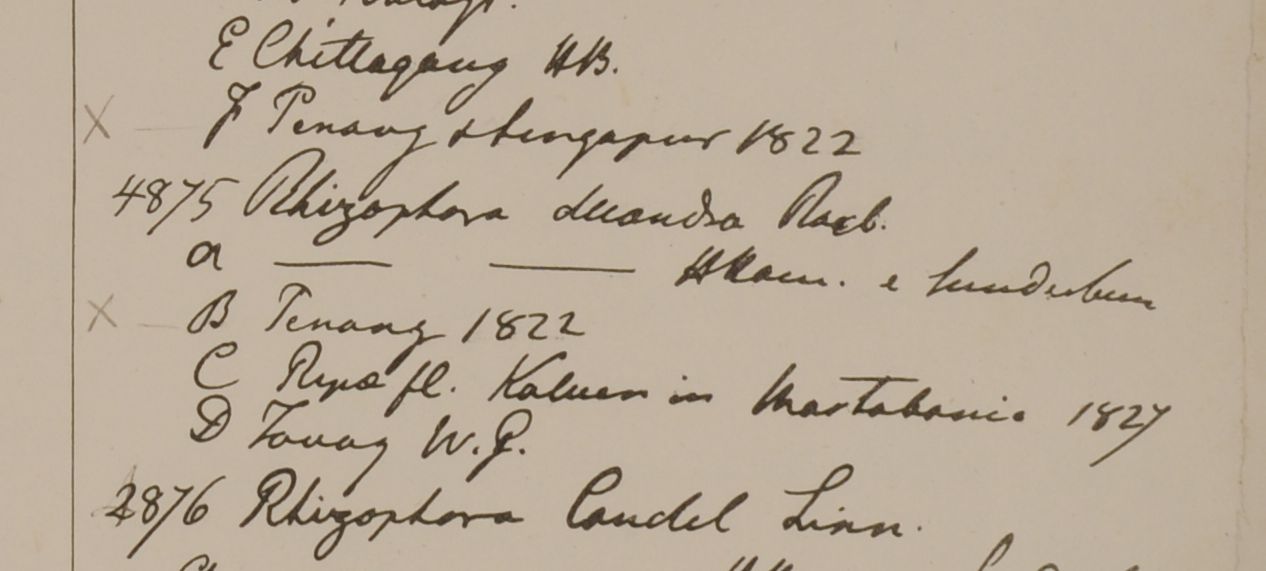 E Chittagang HB.
X — F Penang & Singapur 1822
4875 Rhizophora decandra Roxb.
a — — HHam. e Sunderbun
X — B Penang 1822
C Ripa fl. Kaluen in Martabania 1827
D Tavay W.G.
4876 Rhizophora Candel Linn.